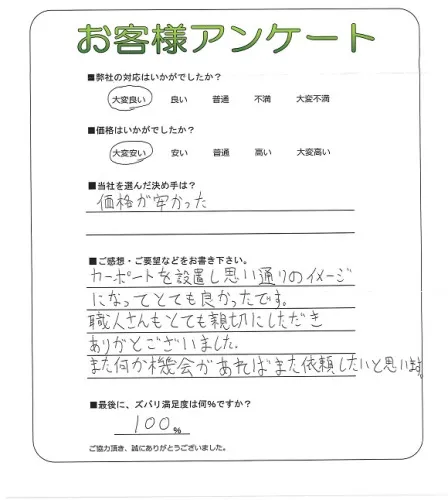 お客様アンケート
■弊社の対応はいかがでしたか?
大変良い 良い 普通 不満 大変不満
■価格はいかがでしたか?
大変安い 安い 普通 高い 大変高い
■当社を選んだ決め手は?
価格が安かった
■ご感想・ご要望などをお書き下さい。
カーポートを設置し思い通りのイメージ
になってとても良かったです。
職人さんもとても親切にしただき
ありがとございました。
また何か機会があればまた依頼したいと思います。
■最後に、ズバリ満足度は何%ですか?
100%
ご協力頂き、誠にありがとうございました。